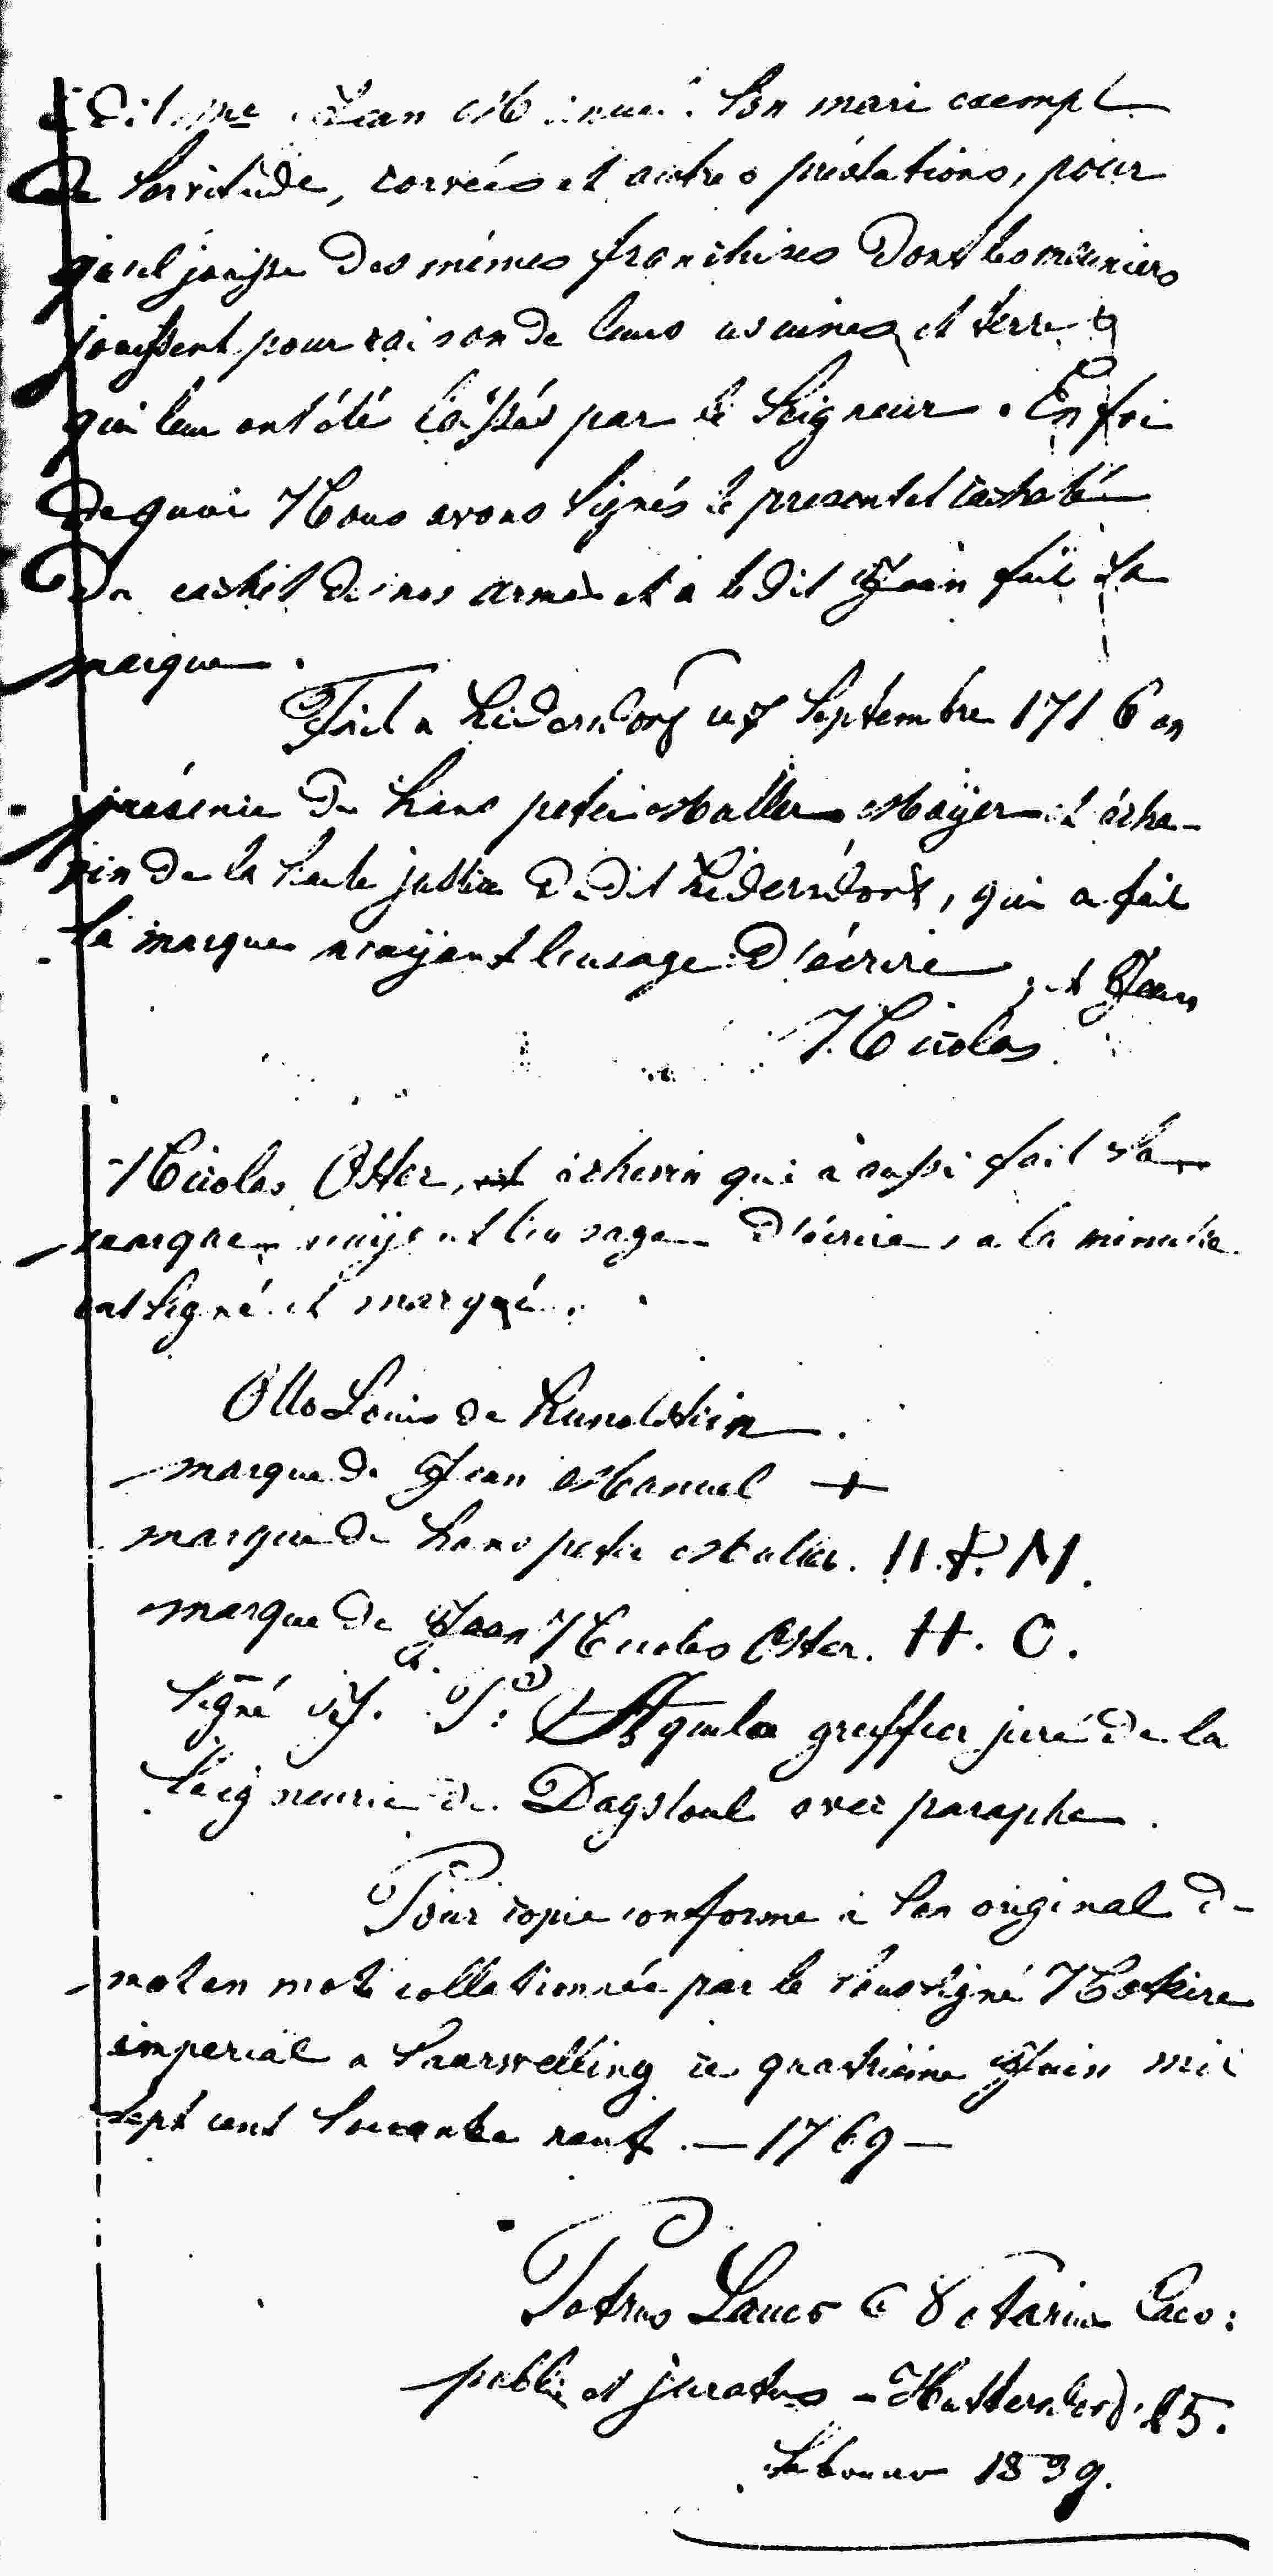 dit Jean Manuel son mari exempt
de servitude, corvées et autres prestations, pour
qu'il jouisse des mêmes franchises dont les meuniers
jouissent pour raison de leurs usuines et terres
qui leur ont été laissés par le Seigneur. En foi
de quoi Nous avons signés le present et cacheté
du cachet de nos armes et a le dit Jean fait sa
marque.
Fait a Hidersdorf ce 7 Septembre 1716 en
présence de Hans peter Maller Mayer et éche-
vin de la haute justice du dit Hidersdorf, qui a fait
sa marque n'ayant l'usage d'écrire, et Jean
Nicolas
Nicolas Oster, échevin qui a aussi fait sa
marque n'ayent l'usage d'écrire, a la minute
ont signé et marqué.
Otto Louis de Hunoltstein.
marque de Jean Manuel +
marque de Hans peter Maller. H. P. M.
marque de Jean Nicolas Oster. H. O.
Signé greffier juré de la
Seigneurie de Dagstoul avec paraphe.
Pour copie conforme à son original de
mot en mot collationnée par le soussigné Notaire
imperial a Saarwelling ce quatrième Juin mil
sept cent soixante neuf. — 1769 —
Petrus Notarius Caes:
public et juratus - Huttersdorf 25.
1839.